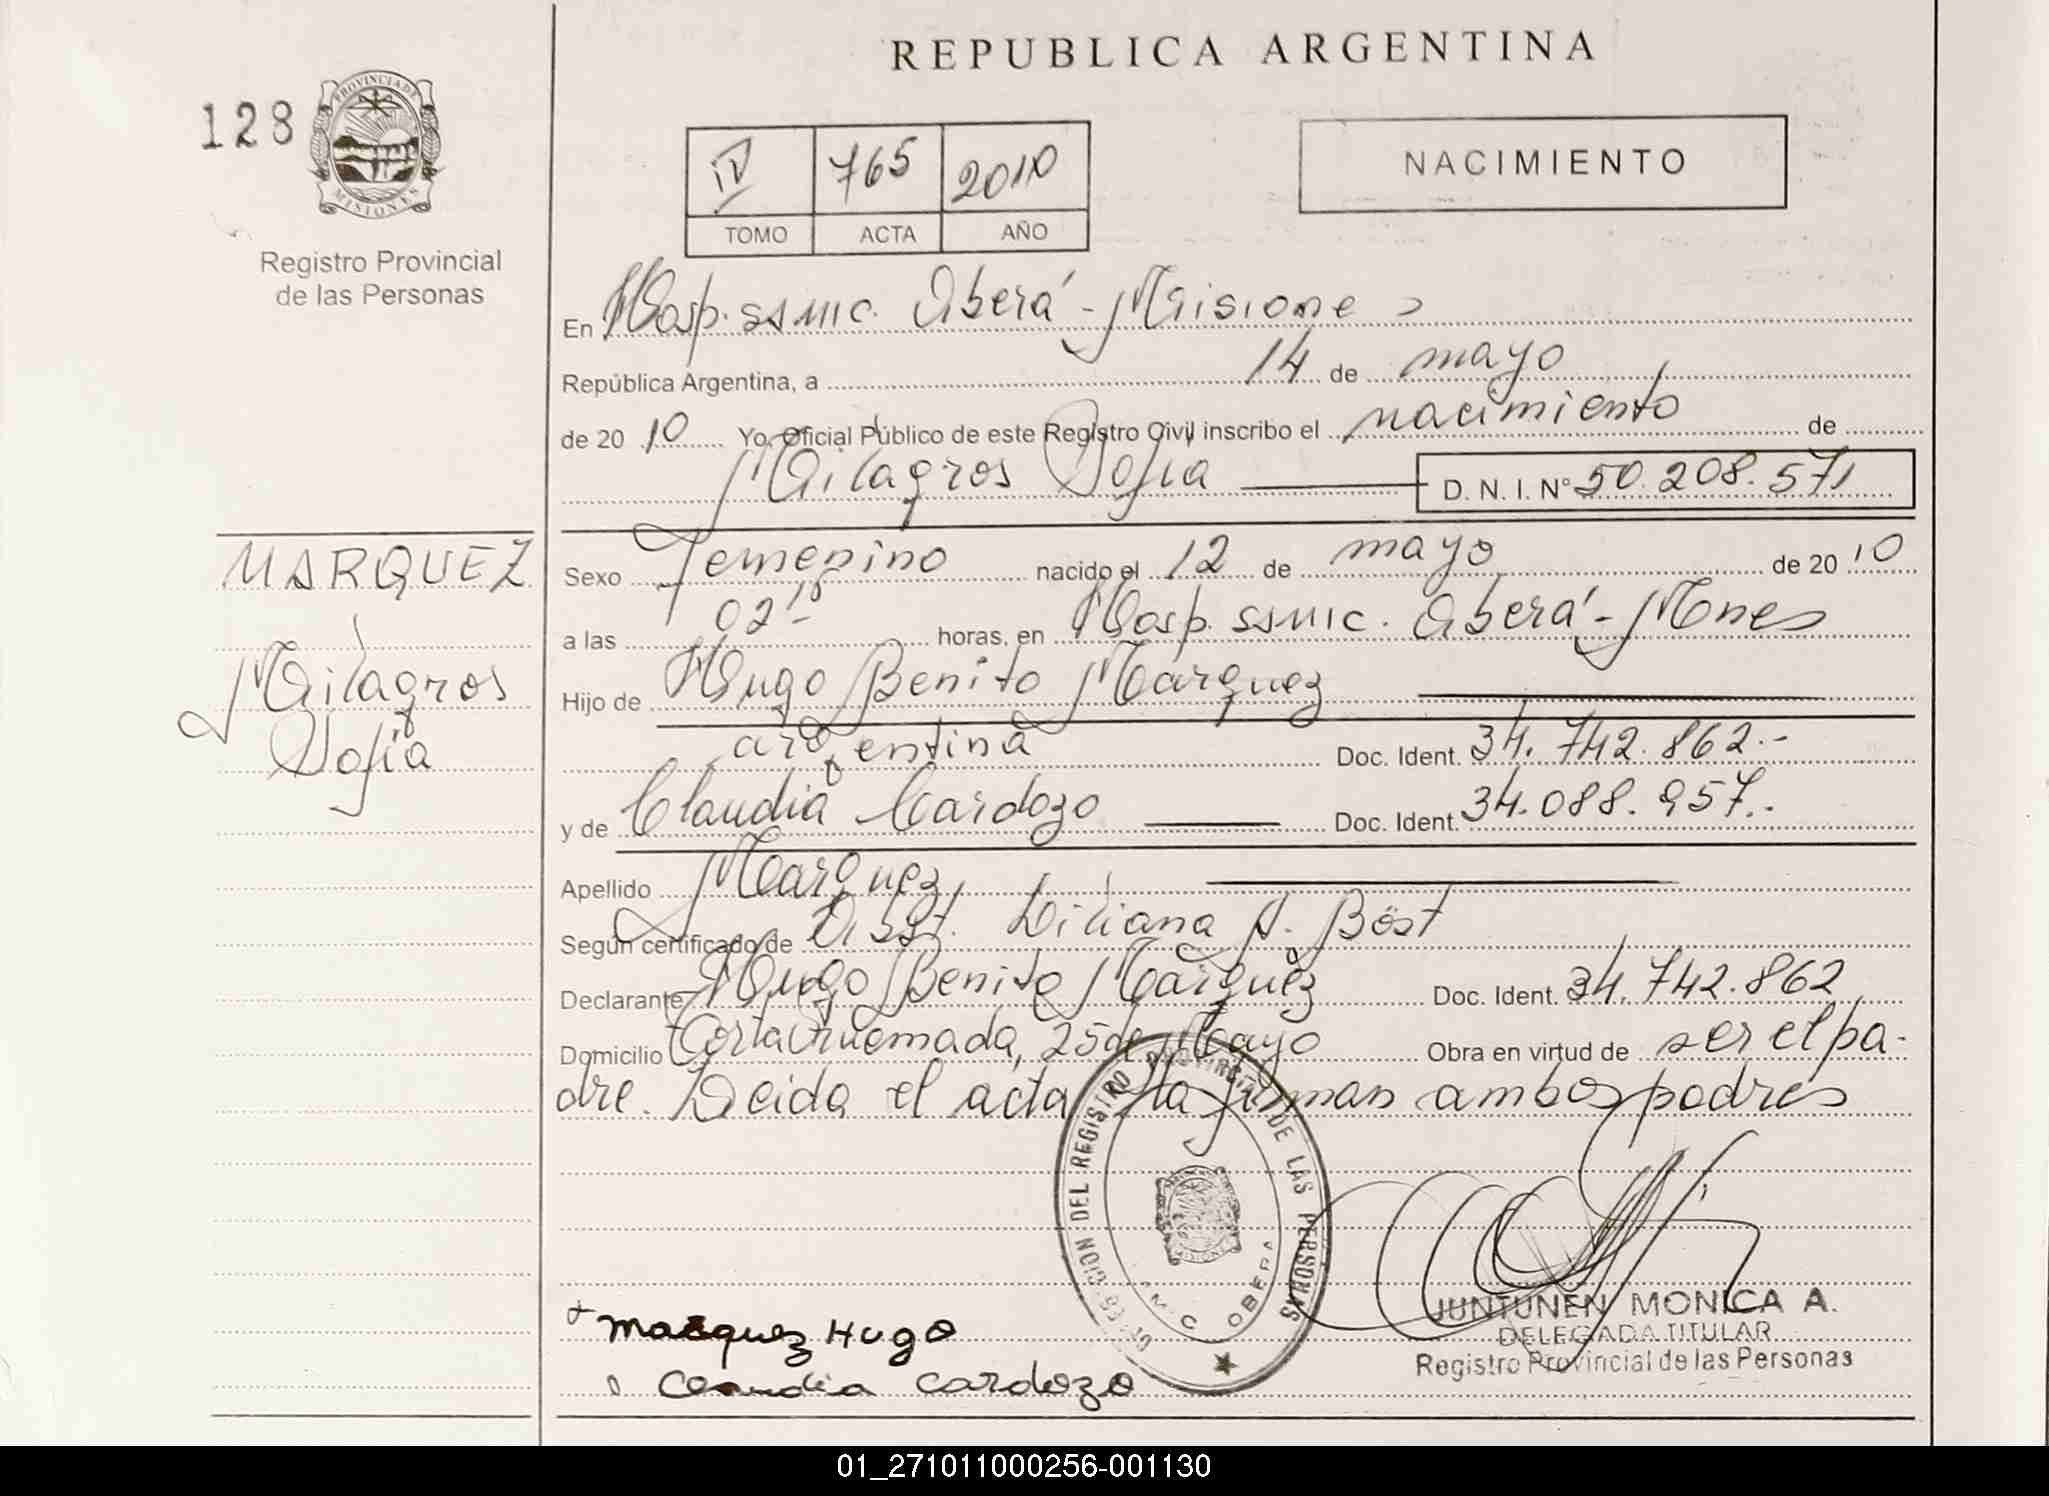 REPUBLICA ARGENTINA
128
PROVINCIA DE
MISIONES
Registro Provincial
de las Personas
IV 765 2010
TOMO ACTA AÑO
NACIMIENTO
En Hosp. SSMIC. Oberá - Misiones
República Argentina, a 14 de mayo
de 2010 Yo, Oficial Público de este Registro Civil inscribo el nacimiento de
Milagros Sofia D. N. I. N° 50.208.571
MARQUEZ
Milagros
Sofia
Sexo femenino nacido el 12 de mayo de 2010
a las 02 15 horas, en Hosp. SSMIC. Oberá - Mnes
Hijo de Hugo Benito Marquez
argentina Doc. Ident. 34.742.862.-
y de Claudia Cardozo Doc. Ident. 34.088.957.-
Apellido Marquez
Según certificado de Obst. Liliana A. Böst
Declarante Hugo Benito Marquez Doc. Ident. 34.742.862
Domicilio Torta Quemada, 25 de Mayo Obra en virtud de ser el pa-
dre. Leida el acta la firman ambos padres
DEL REGISTRO PROVINCIAL DE LAS PERSONAS
MISIONES
OBERA
Marquez Hugo
Claudia Cardozo
JUNTUNEN MONICA A.
DELEGADA TITULAR
Registro Provincial de las Personas
01_271011000256-001130